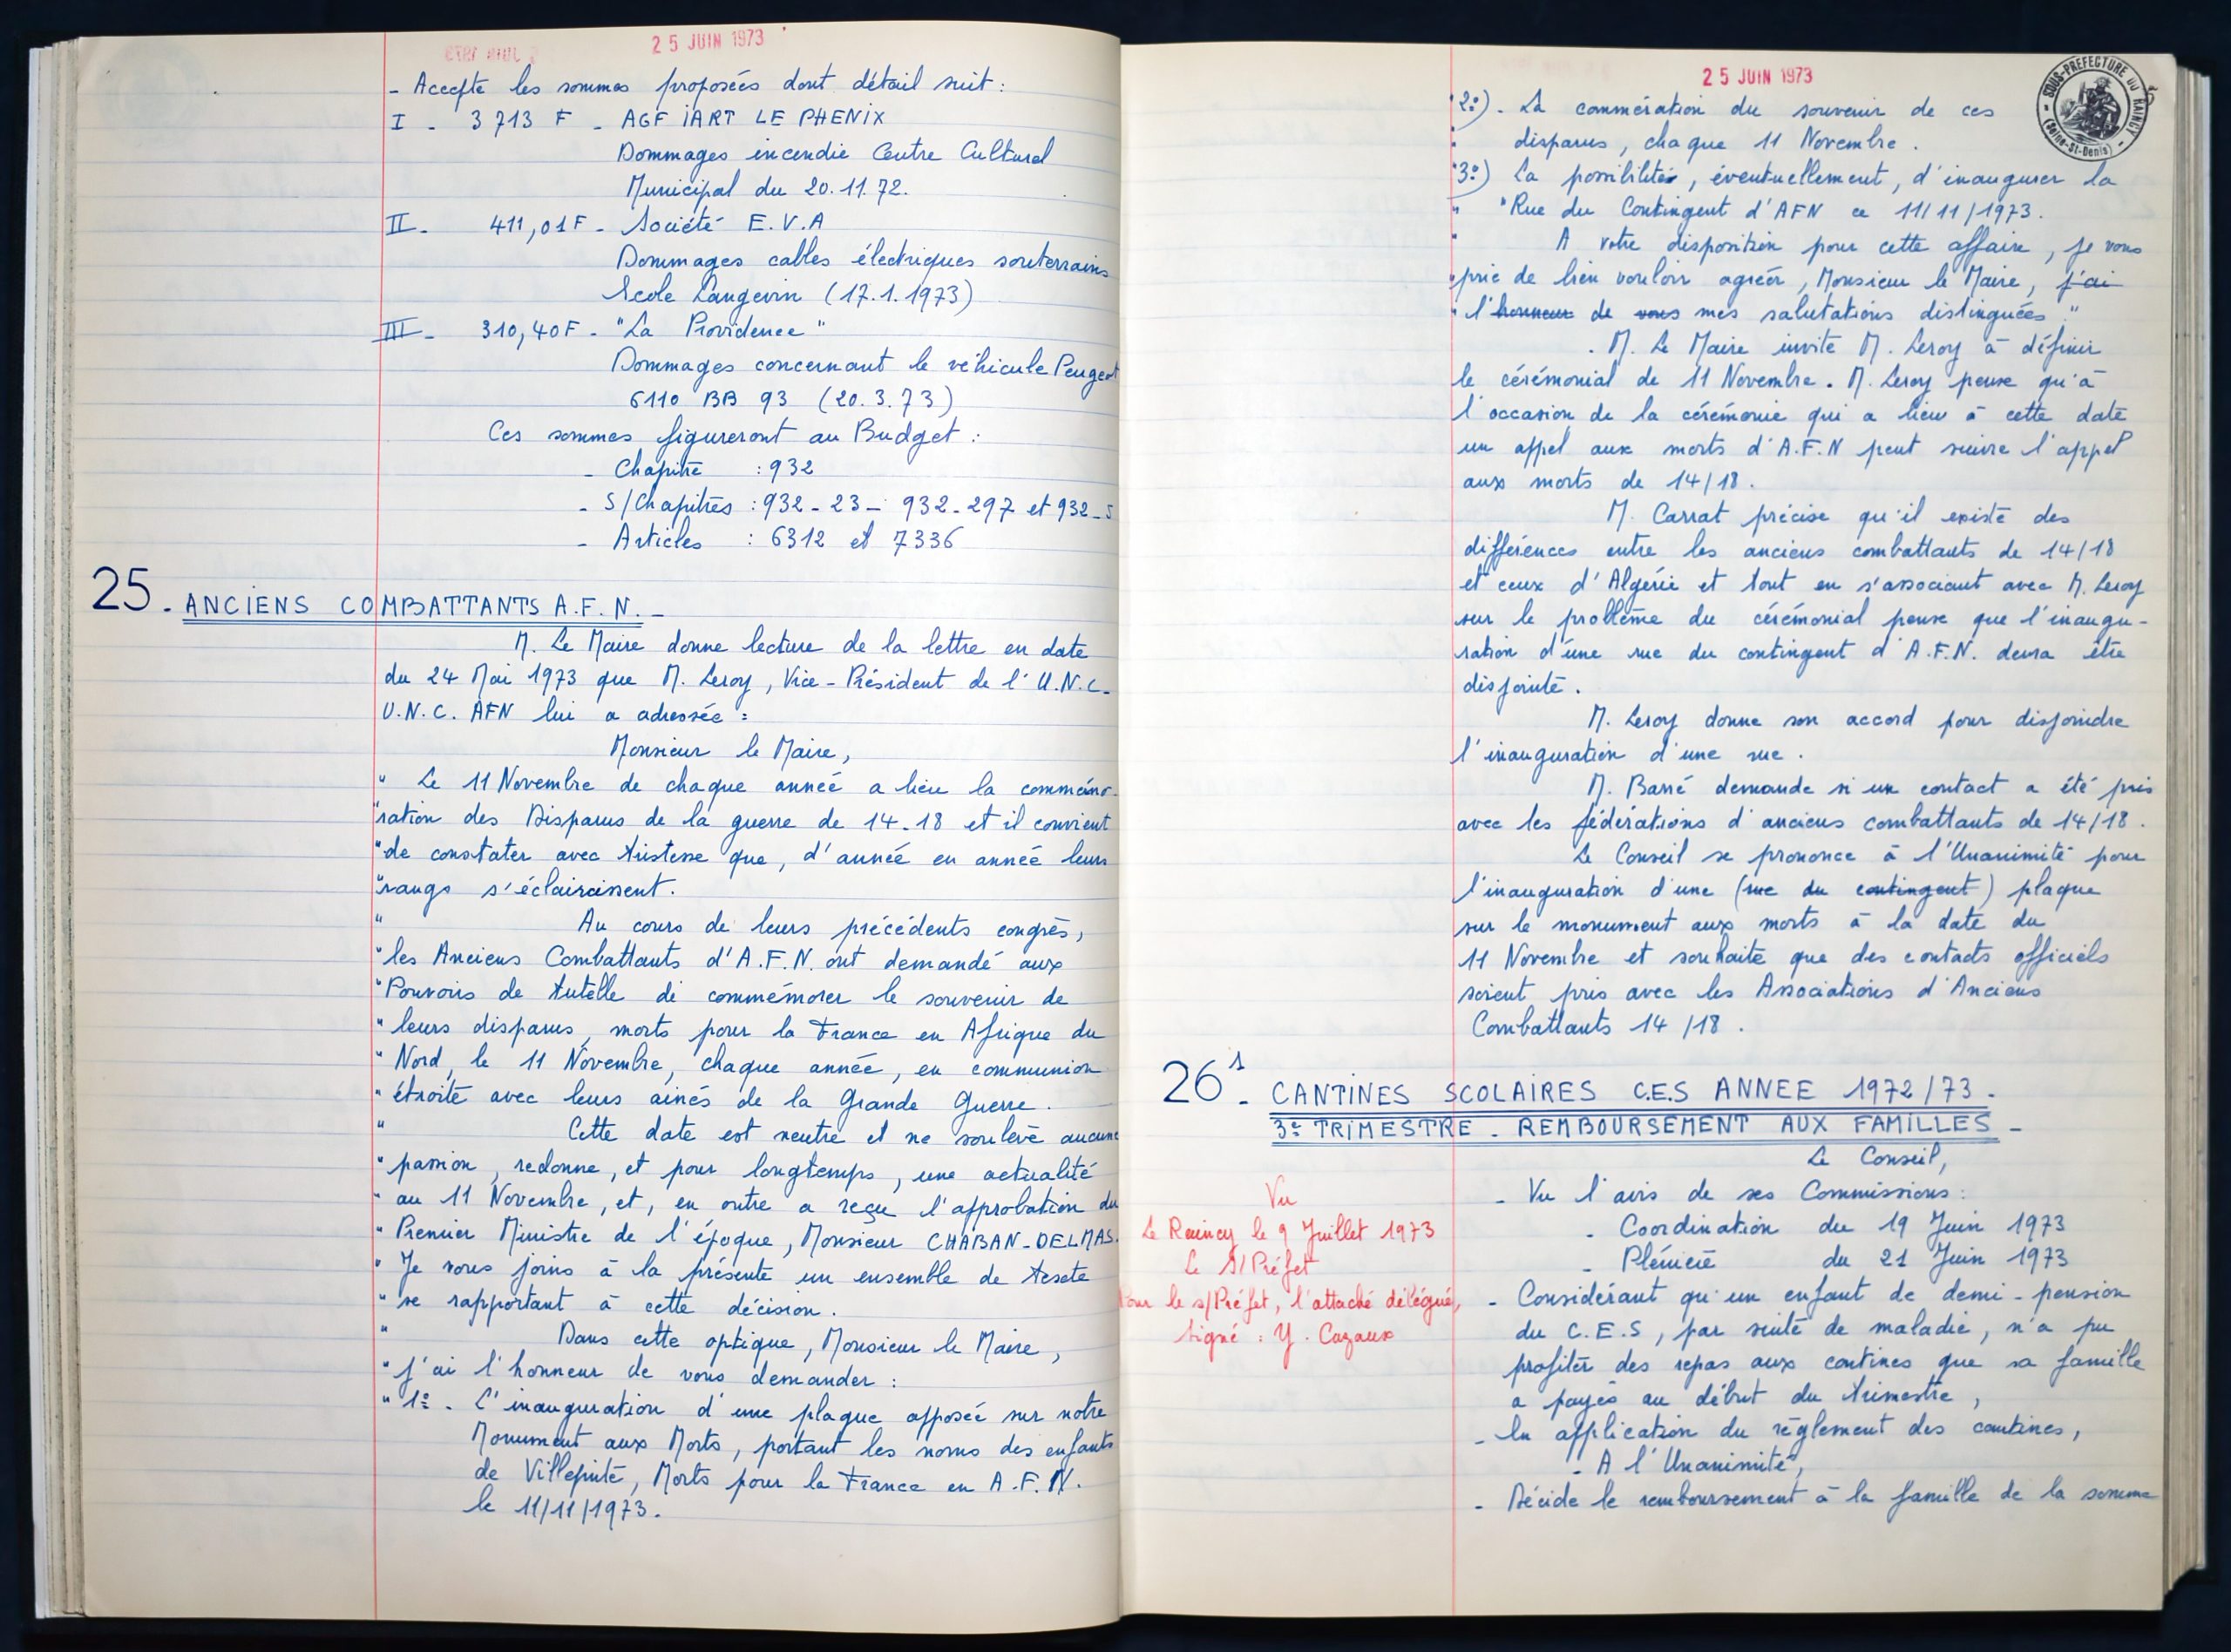 25 JUIN 1973
- Accepte les sommes proposées dont détail suit :
I - 3 713 F - AGF IART LE PHENIX
Dommages incendie Centre Culturel
Municipal du 20.11.72.
II - 411,01F - Société E.V.A
Dommages cables électriques souterrains
Ecole Langevin (17.1.1973)
III - 310,40F - "La Providence"
Dommages concernant le véhicule Peugeot
6110 BB 93 (20.3.73)
Ces sommes figureront au Budget :
- Chapitre : 932
- S/Chapitres : 932-23 - 932-297 et 932-5
- Articles : 6312 et 7336
25 - ANCIENS COMBATTANTS A.F.N. -
M. Le Maire donne lecture de la lettre en date
du 24 Mai 1973 que M. Leroy, Vice-Président de l'U.N.C-
U.N.C. AFN lui a adressée :
Monsieur le Maire,
" Le 11 Novembre de chaque année a lieu la commémo-
"ration des Disparus de la guerre de 14-18 et il convient
"de constater avec tristesse que, d'année en année leurs
"rangs s'éclaircissent.
" Au cours de leurs précédents congrès,
"les Anciens Combattants d'A.F.N. ont demandé aux
"Pouvoirs de tutelle de commémorer le souvenir de
"leurs disparus, morts pour la France en Afrique du
"Nord, le 11 Novembre, chaque année, en communion
"étroite avec leurs ainés de la Grande Guerre.
" Cette date est neutre et ne soulève aucune
"passion, redonne, et pour longtemps, une actualité
"au 11 Novembre, et, en outre a reçu l'approbation du
"Premier Ministre de l'époque, Monsieur CHABAN-DELMAS.
"Je vous joins à la présente un ensemble de texte
"se rapportant à cette décision.
" Dans cette optique, Monsieur le Maire,
"j'ai l'honneur de vous demander :
"1°- L'inauguration d'une plaque apposée sur notre
Monument aux Morts, portant les noms des enfants
de Villepinte, Morts pour la France en A.F.N.
le 11/11/1973.
25 JUIN 1973
SOUS-PREFECTURE DU RAINCY
(Seine-St-Denis)
"2°) - La commération du souvenir de ces
" disparus, chaque 11 Novembre.
"3°) La possibilité, éventuellement, d'inaugurer la
" "Rue du Contingent d'AFN ce 11/11/1973.
" A votre disposition pour cette affaire, je vous
"prie de bien vouloir agréer, Monsieur le Maire, j'ai
"l'honneur de vous mes salutations distinguées."
. M. Le Maire invite M. Leroy à définir
le cérémonial de 11 Novembre. M. Leroy pense qu'à
l'occasion de la cérémonie qui a lieu à cette date
un appel aux morts d'A.F.N peut suivre l'appel
aux morts de 14/18.
M. Carrat précise qu'il existe des
différences entre les anciens combattants de 14/18
et ceux d'Algérie et tout en s'associant avec M. Leroy
sur le problème du cérémonial pense que l'inaugu-
ration d'une rue du contingent d'A.F.N. devra être
disjointe.
M. Leroy donne son accord pour disjoindre
l'inauguration d'une rue.
M. Barré demande si un contact a été pris
avec les fédérations d'anciens combattants de 14/18.
Le Conseil se prononce à l'Unanimité pour
l'inauguration d'une (rue du contingent) plaque
sur le monument aux morts à la date du
11 Novembre et souhaite que des contacts officiels
soient pris avec les Associations d'Anciens
Combattants 14/18.
26¹ - CANTINES SCOLAIRES C.E.S ANNEE 1972/73 -
3è TRIMESTRE - REMBOURSEMENT AUX FAMILLES -
Le Conseil,
- Vu l'avis de ses Commissions :
- Coordination du 19 Juin 1973
- Plénière du 21 Juin 1973
Vu
Le Raincy le 9 Juillet 1973
Le S/Préfet
Pour le s/Préfet, l'attaché délégué,
Signé : Y. Cazaux
- Considérant qu'un enfant de demi-pension
du C.E.S, par suite de maladie, n'a pu
profiter des repas aux cantines que sa famille
a payés au début du trimestre,
- En application du règlement des cantines,
- A l'Unanimité,
- Décide le remboursement à la famille de la somme